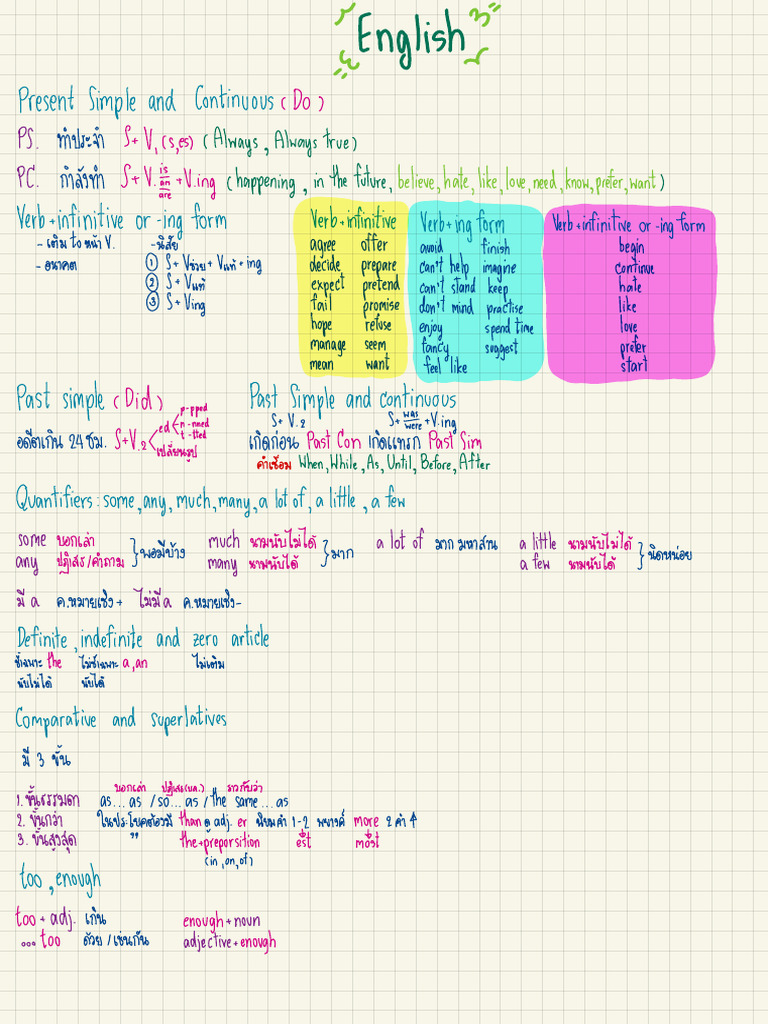 English
Present Simple and Continuous (Do)
PS. ทำประจำ S+V1(s,es) (Always, Always true)
PC. กำลังทำ S+V. is am are +V.ing (happening, in the future, believe, hate, like, love, need, know, prefer, want)
Verb+infinitive or -ing form
- เติม to หน้า V. - นิสัย
- อนาคต ① S+Vช่วย+Vแท้+ing
② S+Vแท้
③ S+Ving
Verb+infinitive
agree offer
decide prepare
expect pretend
fail promise
hope refuse
manage seem
mean want
Verb+ing form
avoid finish
can't help imagine
can't stand keep
don't mind practise
enjoy spend time
fancy suggest
feel like
Verb+infinitive or -ing form
begin
continue
hate
like
love
prefer
start
Past simple (Did)
อดีตเกิน 24 ชม. S+V.2
ed
p-pped
n-nned
t-tted
เปลี่ยนรูป
Past Simple and continuous
S+V.2 S+ was were +V.ing
เกิดก่อน Past Con เกิดแทรก Past Sim
คำเชื่อม When, While, As, Until, Before, After
Quantifiers: some, any, much, many, a lot of, a little, a few
some บอกเล่า
any ปฏิเสธ/คำถาม
พอมีบ้าง
much นามนับไม่ได้
many นามนับได้
มาก
a lot of มากมหาศาล
a little นามนับไม่ได้
a few นามนับได้
นิดหน่อย
มี a ค.หมายเชิง + ไม่มี a ค.หมายเชิง -
Definite, indefinite and zero article
ชี้เฉพาะ the ไม่ชี้เฉพาะ a, an ไม่เติม
นับไม่ได้ นับได้
Comparative and superlatives
มี 3 ขั้น
บอกเล่า ปฏิเสธ
1. ขั้นธรรมดา as...as /so...as/the same...as
2. ขั้นกว่า ในประโยคต้องมี than ดู adj. er นิยมคำ 1-2 พยางค์ more 2 คำ ↑
3. ขั้นสูงสุด " the+preporsition est most
(in, on, of)
too, enough
too + adj. เกิน enough+noun
... too ด้วย/เช่นกัน adjective+enough